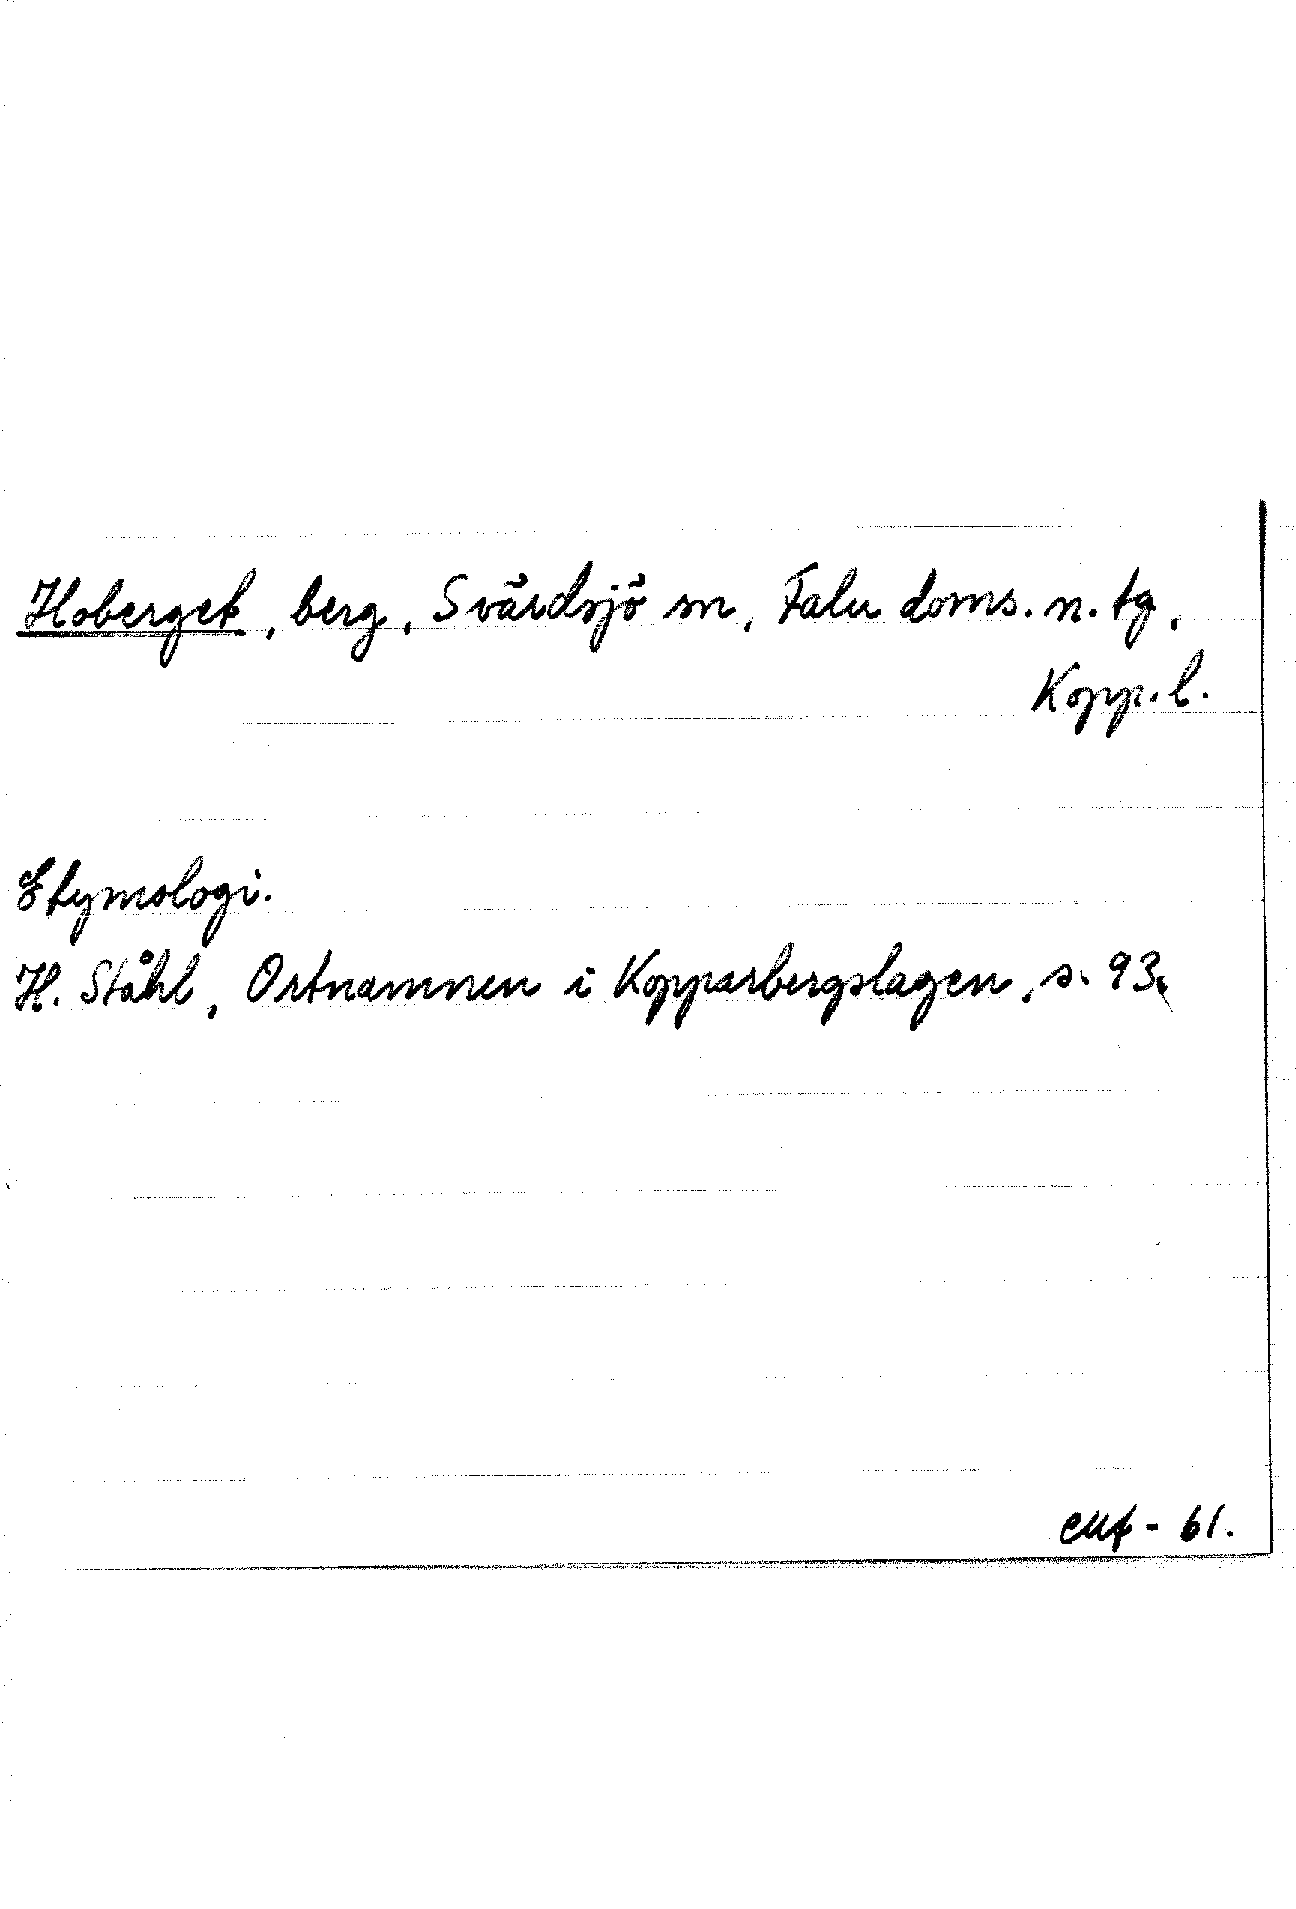 Hoberget, berg, Svärdsjö sn, Falu doms. n. tg,
Kopp. l.
Etymologi.
H. Ståhl, Ortnamnen i Kopparbergslagen, s. 93.
- 61.